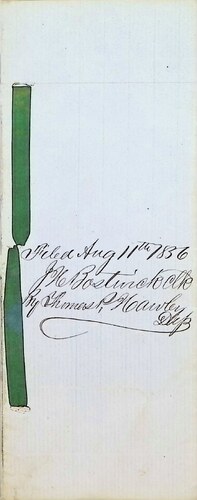 Filed Aug 11th 1856
J H Bostwick clk
By Thomas P. Hawley
Dep